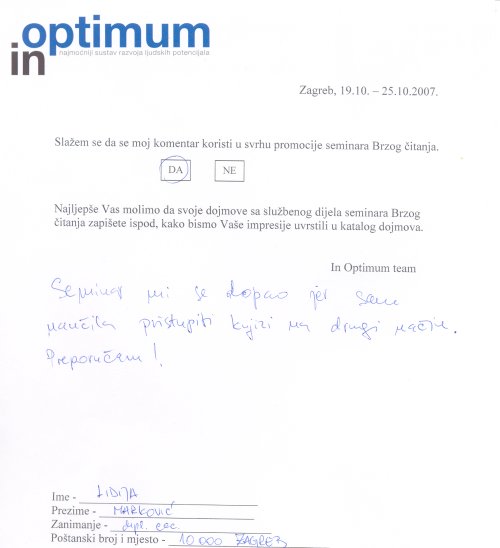 optimum
in
najmoćniji sustav razvoja ljudskih potencijala
Zagreb, 19.10. – 25.10.2007.
Slažem se da se moj komentar koristi u svrhu promocije seminara Brzog čitanja.
DA NE
Najljepše Vas molimo da svoje dojmove sa službenog dijela seminara Brzog
čitanja zapišete ispod, kako bismo Vaše impresije uvrstili u katalog dojmova.
In Optimum team
Seminar mi se dopao jer sam
naučila pristupiti knjizi na drugi način.
Preporučam!
Ime - LIDIJA
Prezime - MARKOVIĆ
Zanimanje - dipl. oec.
Poštanski broj i mjesto - 10 000 ZAGREB